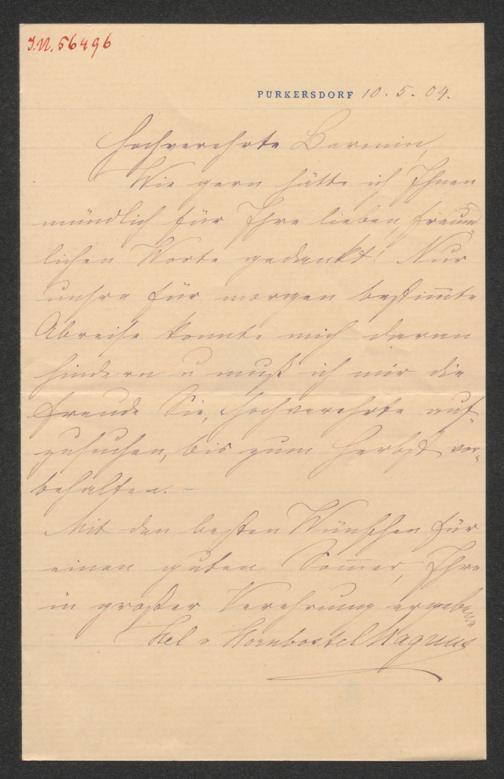 I.N. 56496
PURKERSDORF 10.5.09.
Hochverehrte Baronin,
Wie gern hätte ich Ihnen
mündlich für Ihre lieben, freund-
lichen Worte gedankt! Nur
unsre für morgen bestimmte
Abreise konnte mich daran
hindern u muß ich mir die
Freude Sie, Hochverehrte auf-
zusuchen, bis zum Herbst vor-
behalten. –
Mit den besten Wünschen für
einen guten Sommer, Ihre
in großer Verehrung ergebene
Hel v Hornbostel Magnus